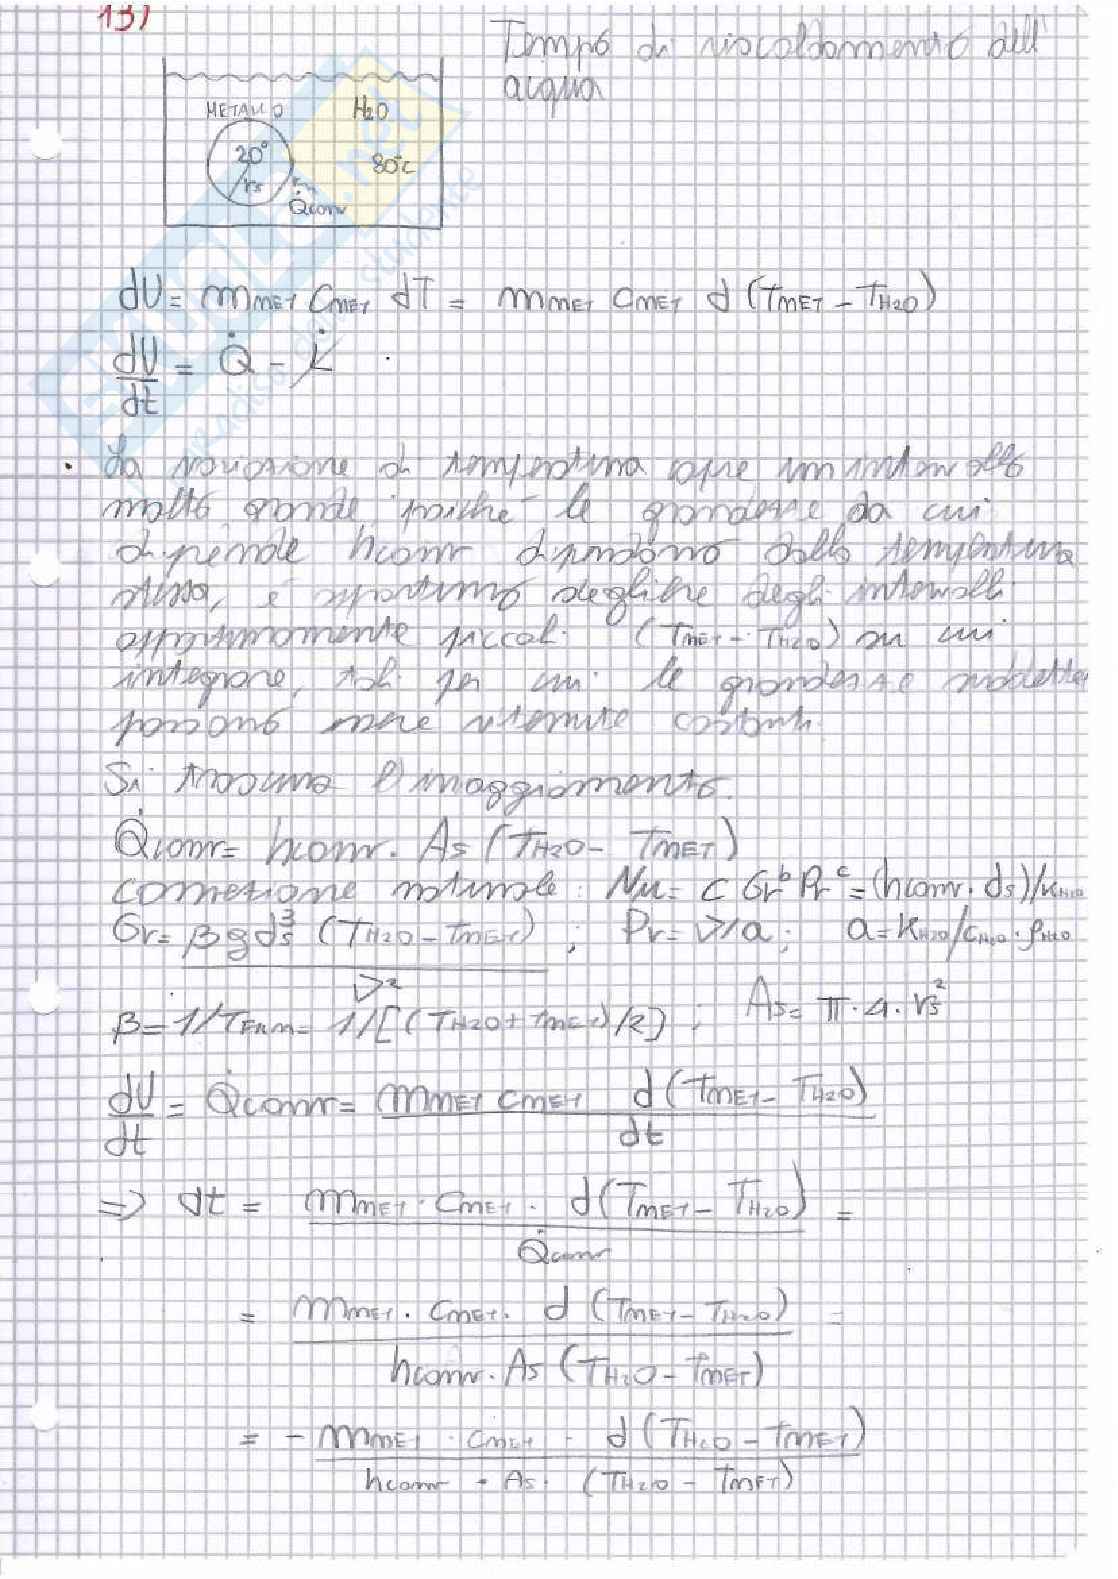 13)
Tempo di riscaldamento dell'
acqua
METALLO H2O
20° 80°C
rs
Q̇conv
dU = mMET cMET dT = mMET cMET d(TMET - TH2O)
dU/dt = Q̇ - L̇
• La variazione di temperatura copre un intervallo
molto grande, poiché le grandezze da cui
dipende hconv dipendono dalla temperatura
stessa, è opportuno scegliere degli intervalli
opportunamente piccoli (TMET - TH2O) su cui
integrare, tali per cui le grandezze suddette
possano essere ritenute costanti.
Si trascura l'irraggiamento.
Q̇conv = hconv · As (TH2O - TMET)
convezione naturale: Nu = C Gr^b Pr^c = (hconv · ds)/kH2O
Gr = β g ds³ (TH2O - TMET) / ν² ; Pr = ν/a ; a = kH2O/cH2O · ρH2O
β = 1/TFILM = 1/[(TH2O + TMET)/2] ; As = π · 4 · rs²
dU/dt = Q̇conv = mMET cMET d(TMET - TH2O) / dt
=> dt = mMET · cMET · d(TMET - TH2O) / Q̇conv =
= mMET · cMET · d(TMET - TH2O) / hconv · As (TH2O - TMET) =
= - mMET · cMET · d(TH2O - TMET) / hconv · As · (TH2O - TMET)